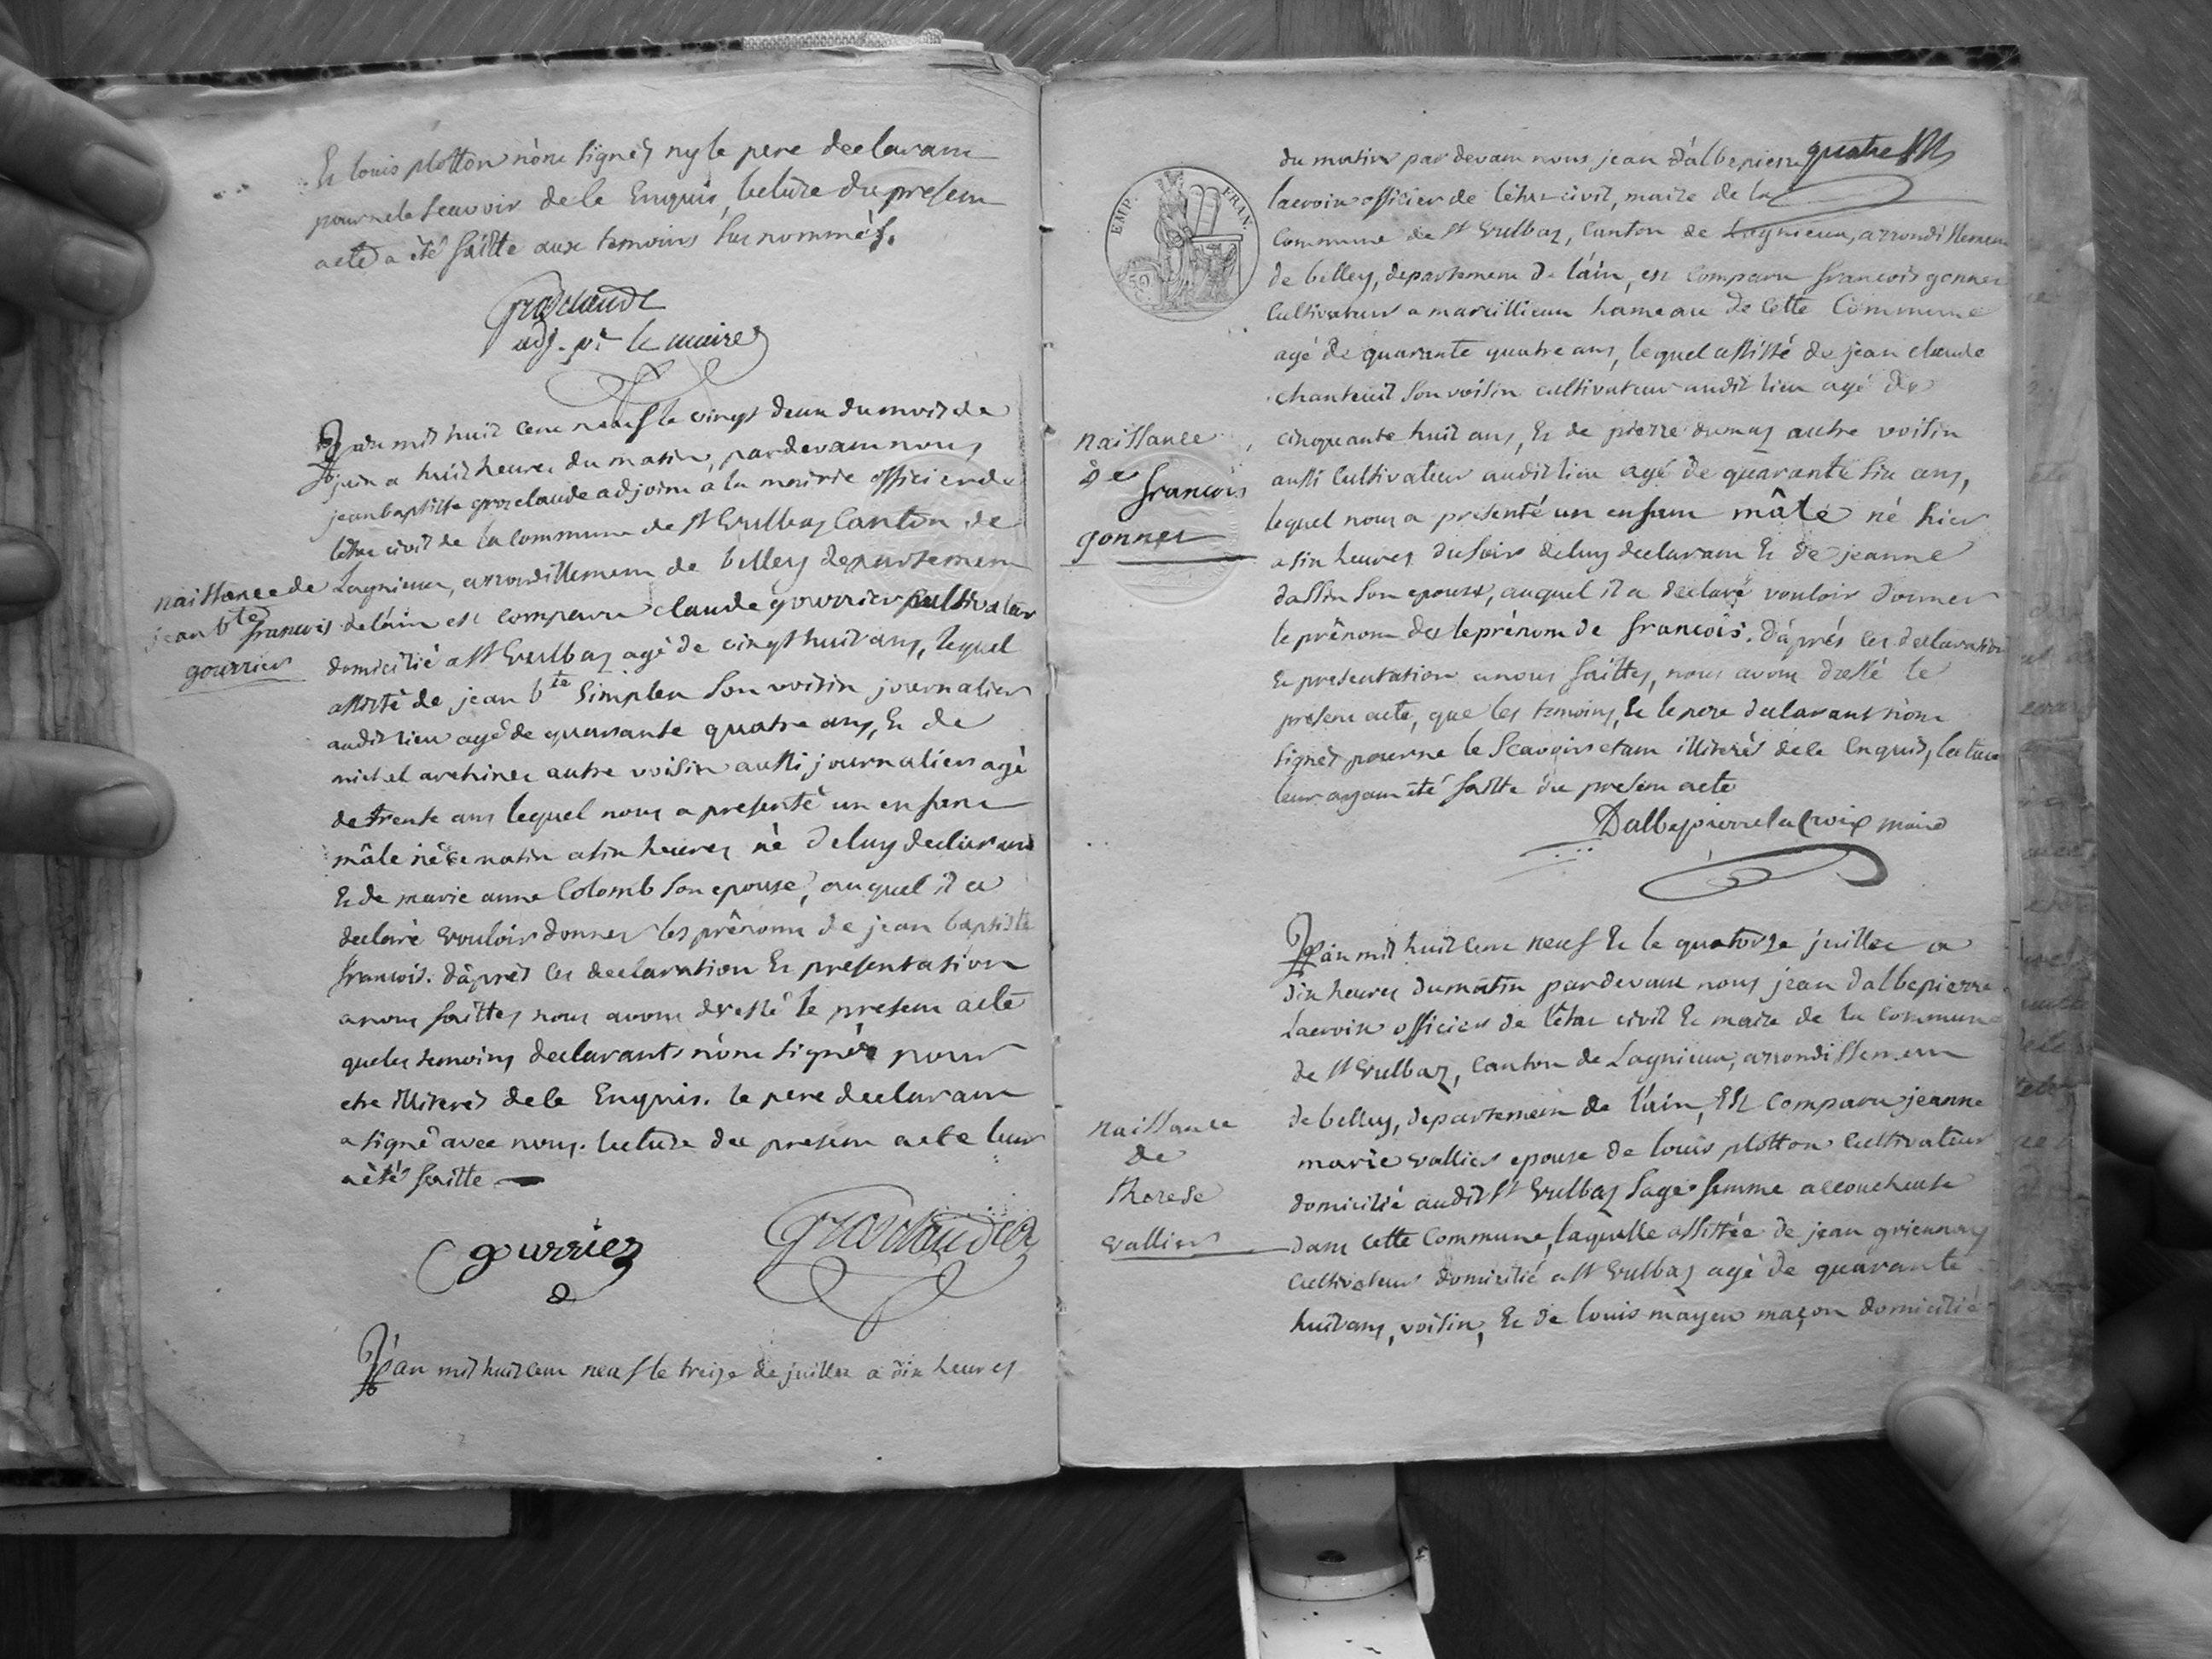 Et louis plotton n'ont signés ny le pere declarant
pour ne le scavoir de le Enquis, lecture du present
acte a été faitte aux temoins sus nommés.
grosclaude
adj. pr le maire
L'an mil huit cent neuf le vingt deux du mois de
juin a huit heures du matin, pardevant nous
jean baptiste grosclaude adjoint a la mairie officier de
l'état civil de la commune de St Vulbas Canton de
naissance de
jean bte francois
gourrier
Lagnieux, arrondissement de belley departement
de l'ain est comparu claude gourrier cultivateur
domicilié a St Vulbas agé de vingt huit ans, lequel
assisté de jean bte Simplex son voisin journalier
audit lieu agé de quarante quatre ans, Et de
michel autre voisin aussi journalier agé
de trente ans lequel nous a presenté un enfant
mâle né ce matin a six heures né de luy declarant
Et de marie anne Colomb son epouse, auquel il a
declaré vouloir donner les prénoms de jean baptiste
francois. d'après ces declaration Et presentation
a nous faittes nous avons dressé le present acte
que les temoins declarants n'ont signés pour
etre illiterés de le Enquis. le pere declarant
a signé avec nous. lecture du present acte leur
a été faitte
gourrier
grosclaude
L'an mil huit cent neuf le treize de juillet a dix heures
quatre
EMP. FRAN.
du matin par devant nous jean d'albepierre
lacroix officier de l'état civil, maire de la
Commune de St Vulbas, Canton de Lagnieux, arrondissement
de belley, departement de l'ain, est comparu francois gonnet
Cultivateur a marcillieux hameau de cette Commune
agé de quarante quatre ans, lequel assisté de jean claude
chanteuil son voisin cultivateur audit lieu agé de
naissance
de
francois
gonnet
cinquante huit ans, Et de pierre dumas autre voisin
aussi Cultivateur audit lieu agé de quarante six ans,
lequel nous a presenté un enfant mâle né hier
a six heures du soir de luy declarant Et de jeanne
dassin son epouse, auquel il a declaré vouloir donner
le prénom de le prénom de francois. d'après ces declaration
Et presentation a nous faittes, nous avons dressé le
present acte, que les temoins, Et le pere declarant n'ont
signés pour ne le Scavoir etant illiterés de le Enquis, lecture
leur ayant été faitte du present acte
Dalbepierre la Croix maire
L'an mil huit cent neuf Et le quatorze juillet a
dix heures du matin pardevant nous jean dalbepierre
Lacroix officier de l'état civil Et maire de la Commune
de St Vulbas, Canton de Lagnieux, arrondissement
de belley, departement de l'ain, Est Comparu jeanne
naissance
de
therese
vallier
marie vallier epouse de louis plotton Cultivateur
domicilié audit St Vulbas sage femme accoucheuse
dans cette Commune, laquelle assistée de jean
Cultivateur domicilié a St Vulbas agé de quarante
huit ans, voisin, Et de louis mayeu maçon domicilié